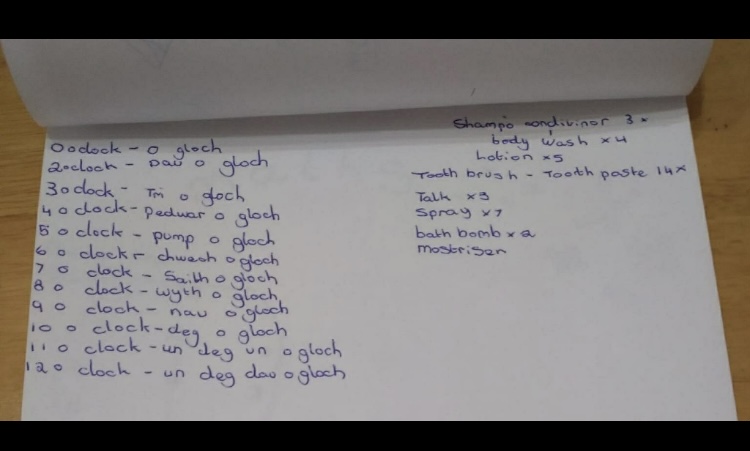 0 o clock - o gloch
2 o clock - Dau o gloch
3 o clock - Tri o gloch
4 o clock - pedwar o gloch
5 o clock - pump o gloch
6 o clock - chwech o gloch
7 o clock - Saith o gloch
8 o clock - wyth o gloch
9 o clock - nau o gloch
10 o clock - deg o gloch
11 o clock - un deg un o gloch
12 o clock - un deg dau o gloch
Shampo condivinor 3x
body wash x4
Lotion x5
Tooth brush - Tooth paste 14x
Talk x3
Spray x7
bath bomb x2
mostrisen